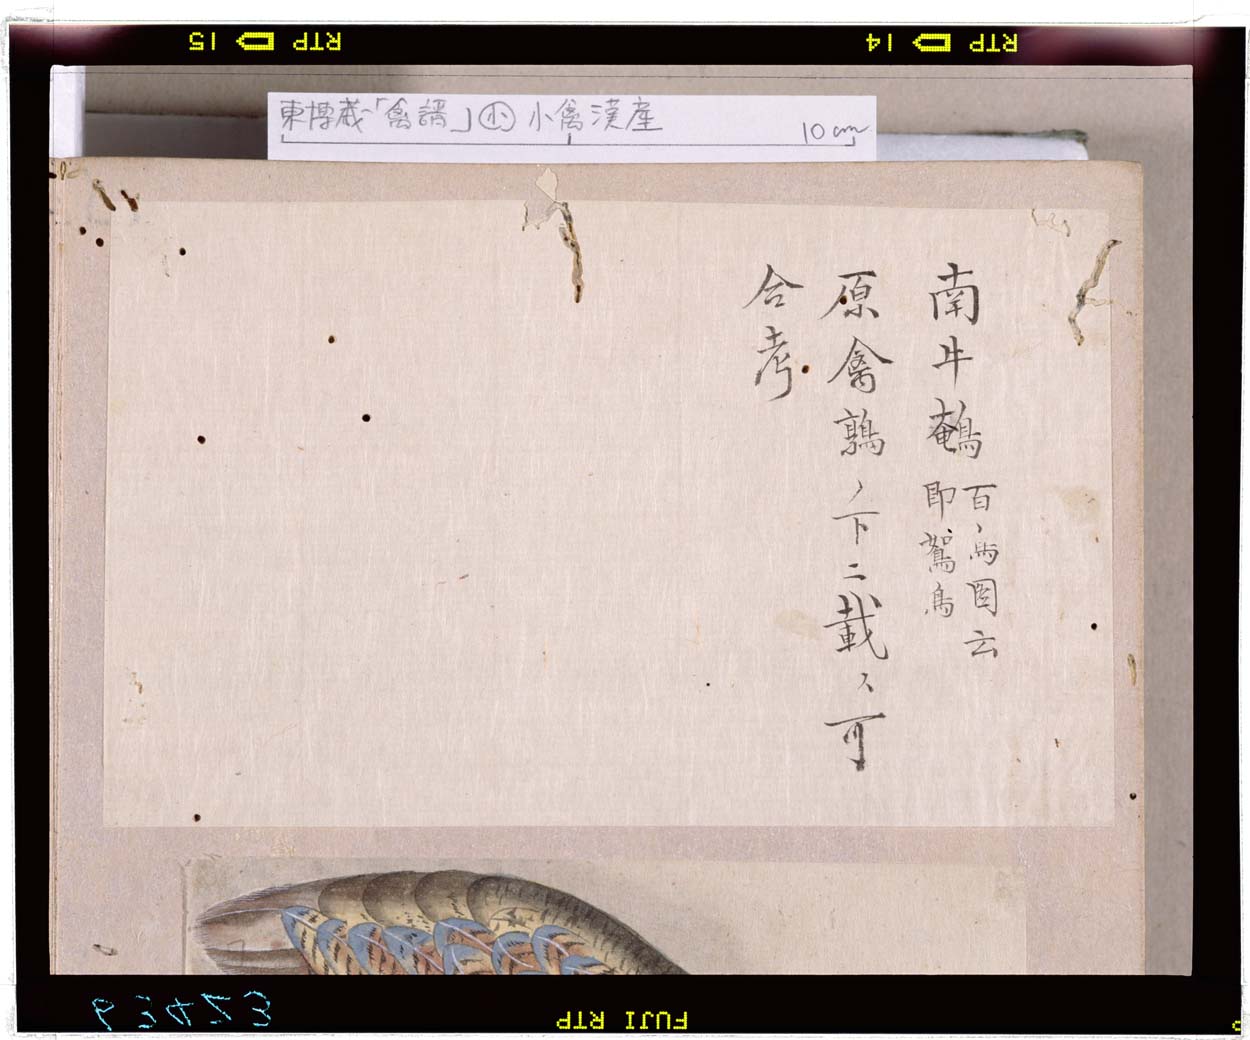 15 RTP
14 RTP
東博蔵「禽譜」㊥ 小禽 漢産
10cm
南牛鵪
百鳥図云
即鴽鳥
原禽鶉ノ下ニ載ス可
合考
FUJI RTP